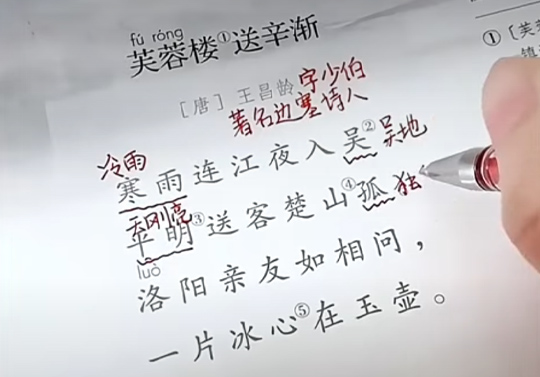 fú róng
芙蓉楼①送辛渐
① [芙
镇
[唐] 王昌龄 字少伯
著名边塞诗人
冷雨
寒雨连江夜入吴② 吴地
天刚亮
平明③送客楚山④孤 独
luò
洛阳亲友如相问，
一片冰心⑤在玉壶。